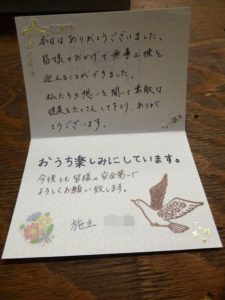 本日はありがとうございました。
皆様のおかげで無事上棟を
迎えることができました。
私たちの想いを聞いて素敵な
提案をたくさんして下さり、ありが
とうございます。
おうち楽しみにしています。
今後とも皆様の安全第一で
よろしくお願い致します。
施主